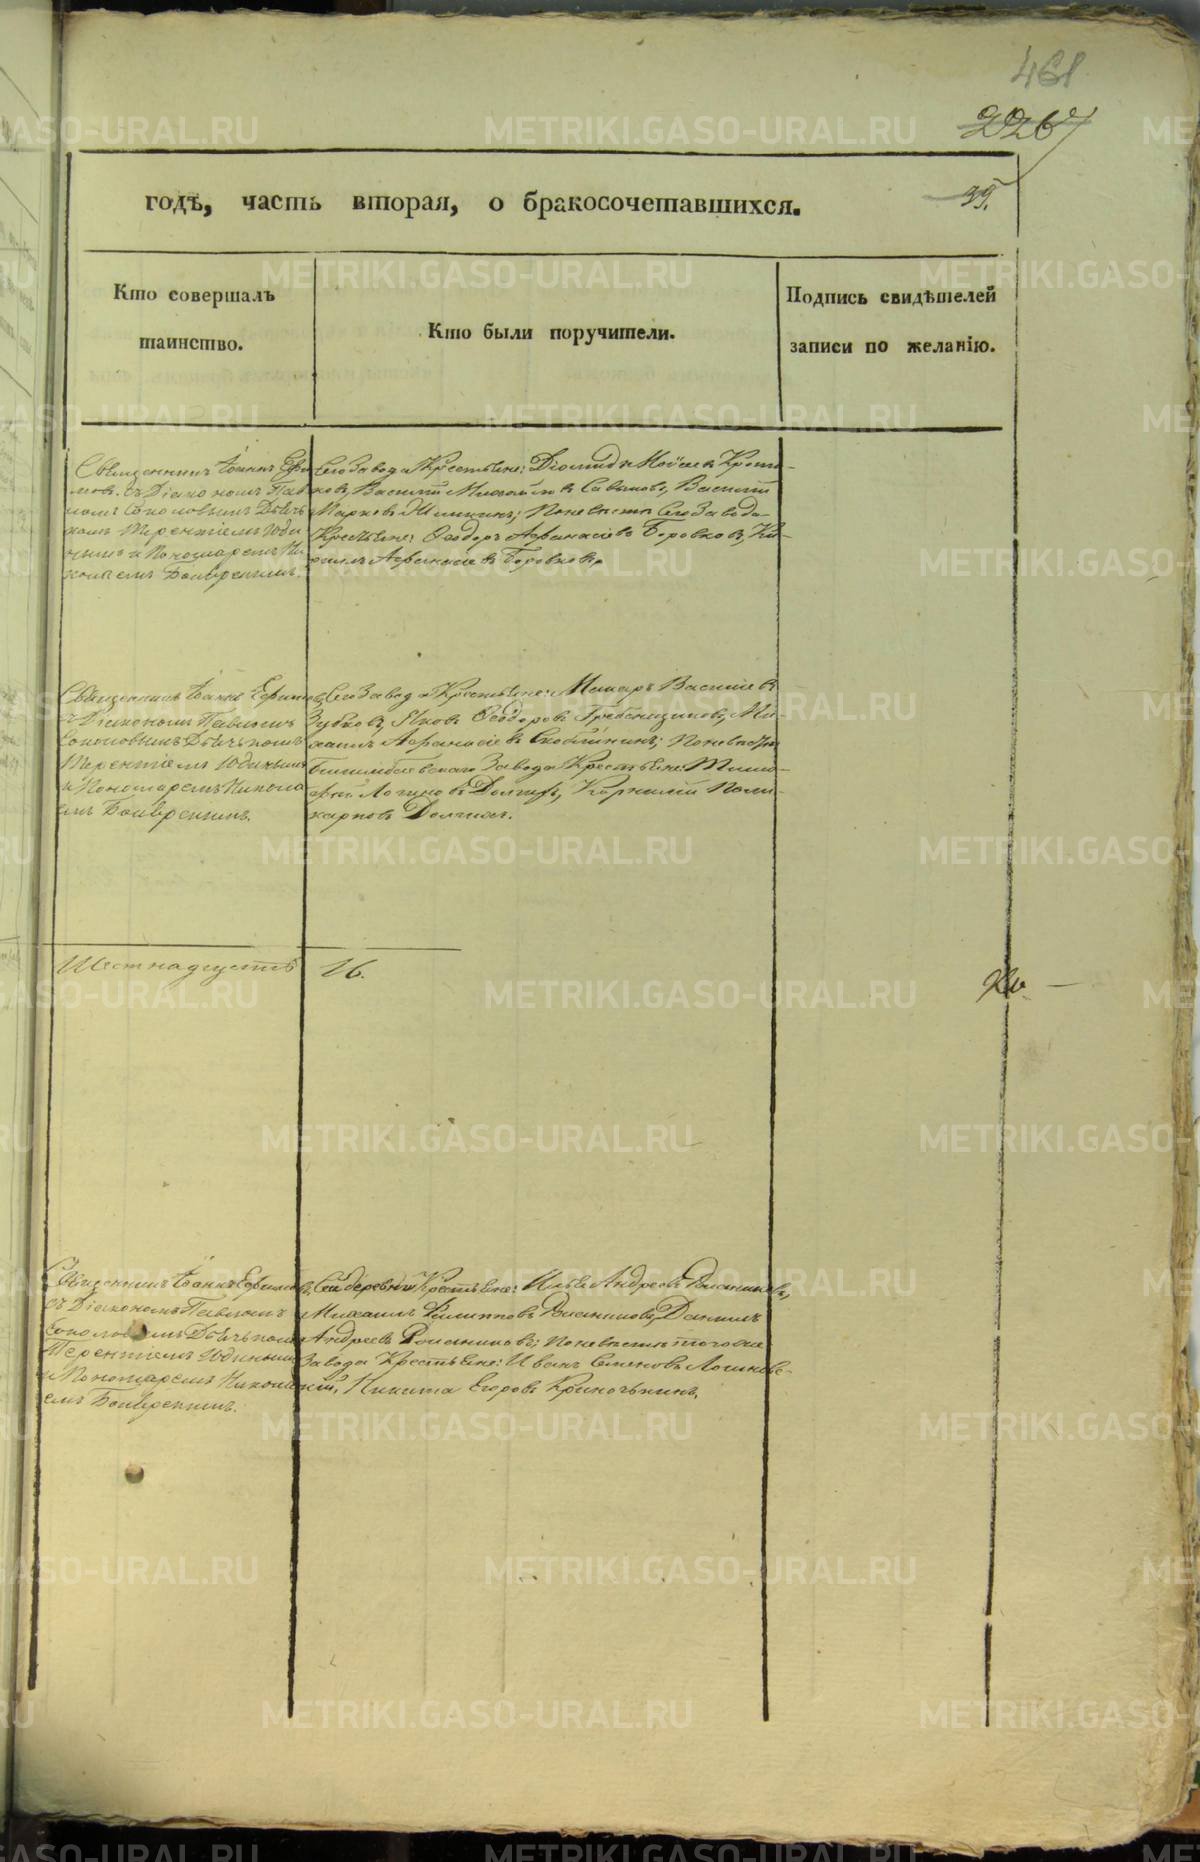 461
2267
годѣ, часть вторая, о бракосочетавшихся.
39.
Кто совершалъ
таинство.
Кто были поручители.
Подпись свидѣтелей
записи по желанію.
Священникъ Іоаннъ Ефи
мовъ съ Діакономъ Пав
ломъ Соколовымъ Дьячь
комъ Терентіемъ Юди
нымъ и Пономаремъ Ни
колаемъ
Сего Завода Крестьяне: Діомидъ Моисеевъ
Василій Михайловъ Василій
Марковъ по невѣстѣ Сего Завода
Крестьяне: Ѳеодоръ Афанасіевъ Боровковъ, Ки-
Афанасіевъ Боровковъ.
Священникъ Іоаннъ Ефимовъ
съ Діакономъ Павломъ
Соколовымъ Дьячькомъ
Терентіемъ Юдинымъ
и Пономаремъ Никола
емъ
Сего Завода Крестьяне: Макаръ Василіевъ
Зубковъ, Яковъ Ѳеодоровъ Гребенщиковъ, Ми-
хаилъ Афанасіевъ по невѣстѣ
Билимбаевскаго Завода Крестьяне: Тимо-
фей Логиновъ Корнилій Поли-
карповъ
Шестнадцать 16.
Священникъ Іоаннъ Ефимовъ
съ Діакономъ Павломъ
Соколовымъ Дьячькомъ
Терентіемъ Юдинымъ
и Пономаремъ Никола
емъ
Сей деревни Крестьяне: Илья Андреевъ
Михаилъ Филипповъ Даніилъ
Андреевъ по невѣстѣ того же
Завода Крестьяне: Иванъ Семеновъ
Никита Егоровъ
METRIKI.GASO-URAL.RU